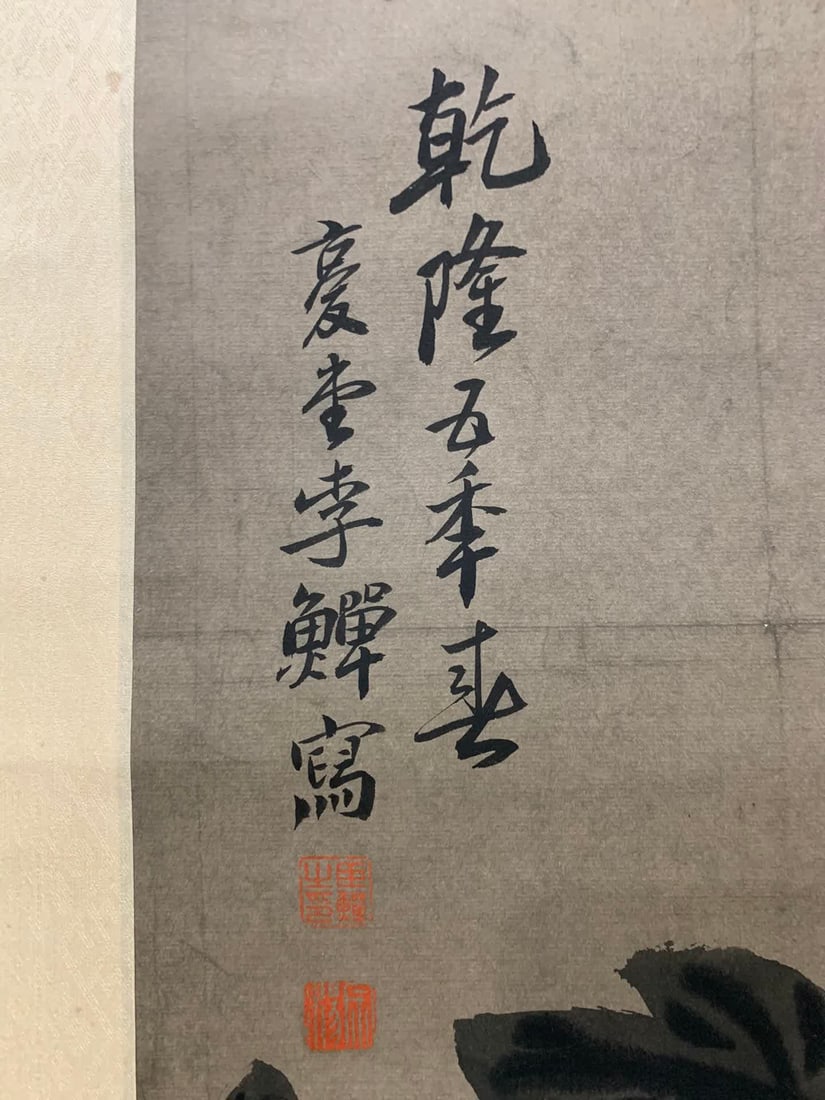 乾隆五秊春
复堂李鱓寫